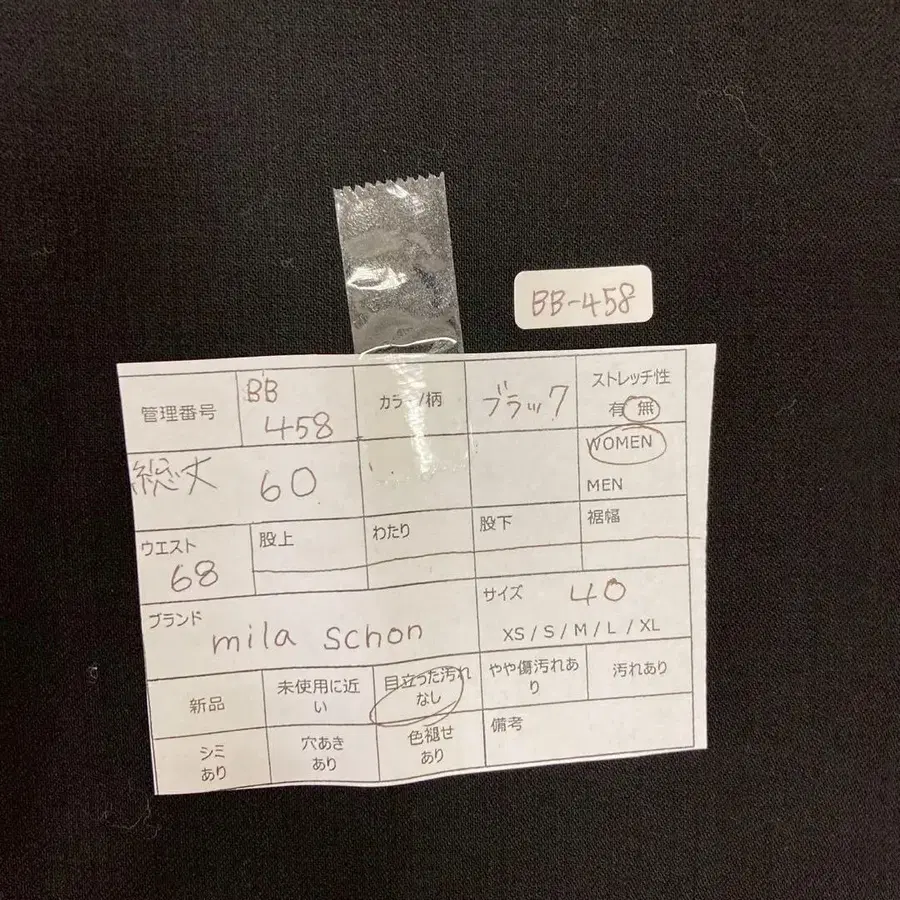 BB-458
管理番号
BB
458
カラー/柄
ブラック
ストレッチ性
有 無
総丈
60
WOMEN
MEN
ウエスト
68
股上
わたり
股下
裾幅
ブランド
mila schon
サイズ 40
XS / S / M / L / XL
新品
未使用に近
い
目立った汚れ
なし
やや傷汚れあ
り
汚れあり
シミ
あり
穴あき
あり
色褪せ
あり
備考